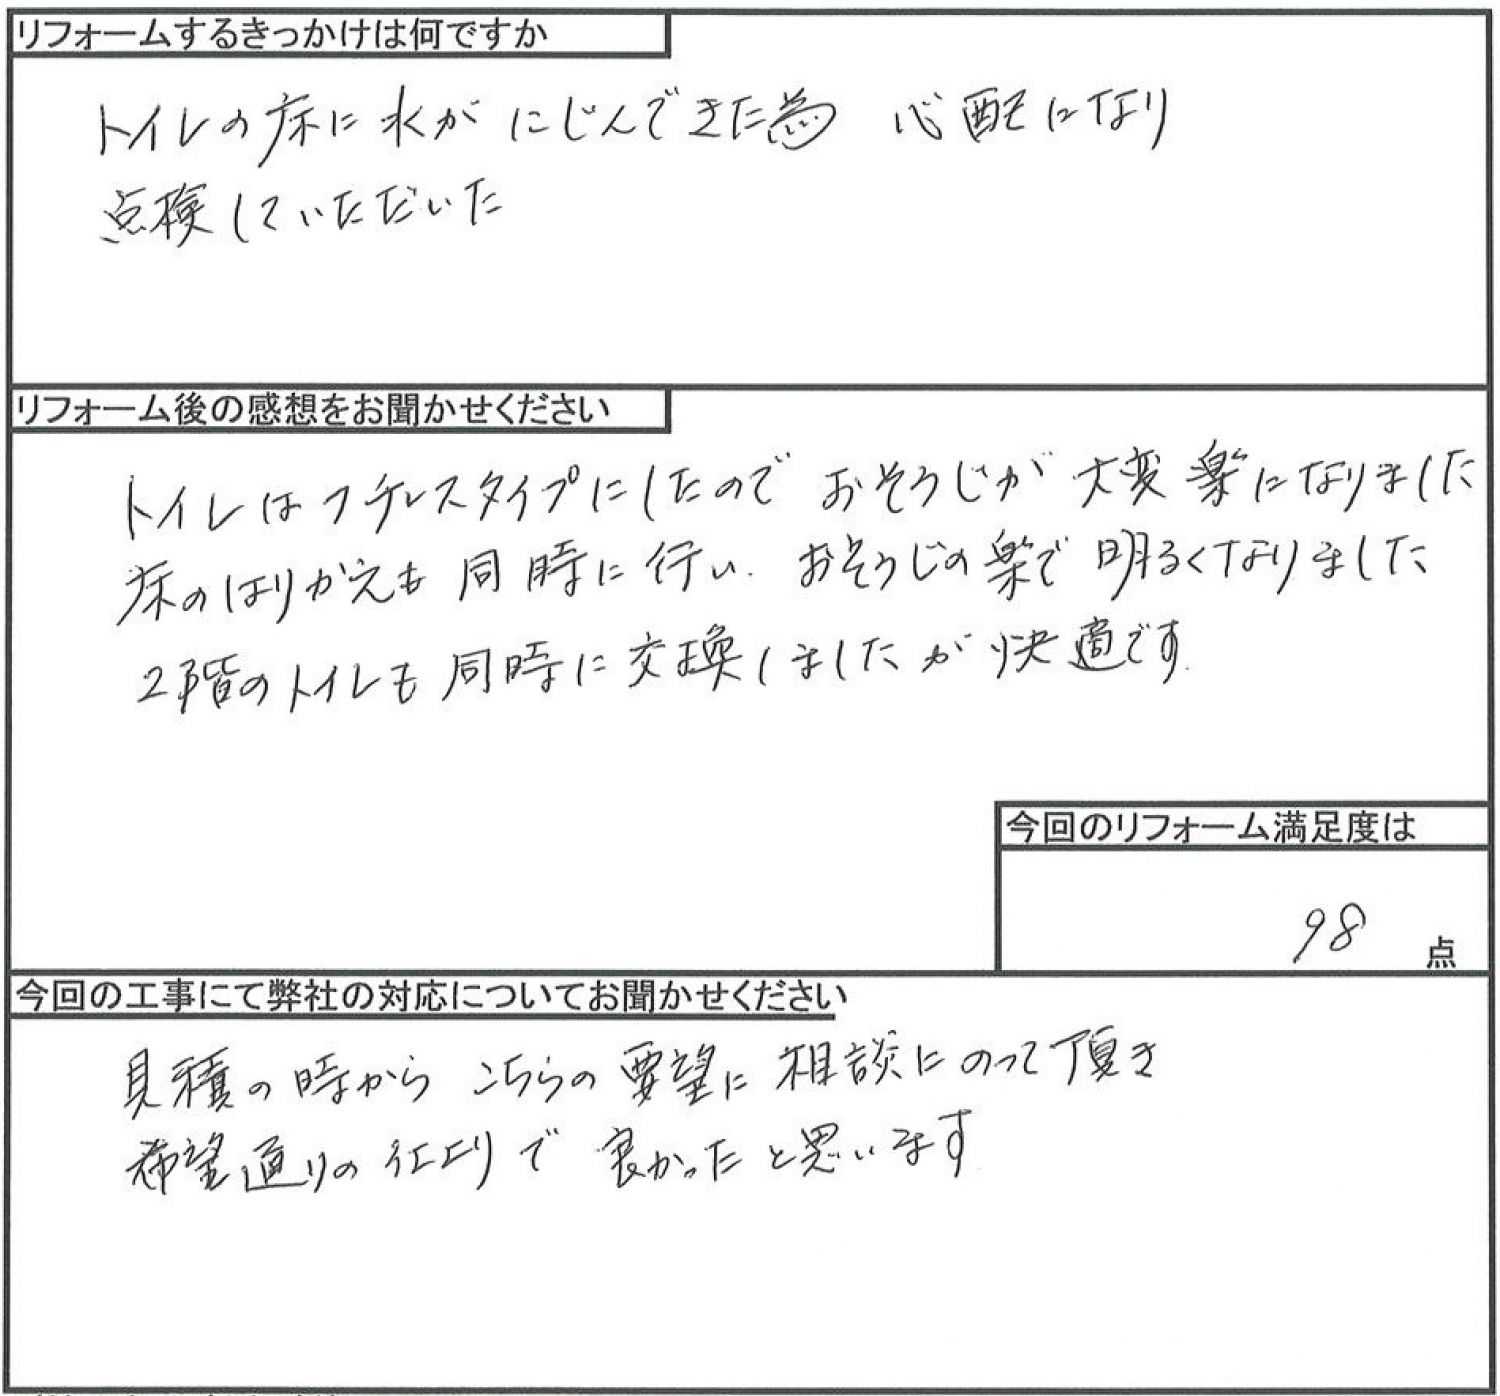 リフォームするきっかけは何ですか
トイレの床に水がにじんできた為 心配になり
点検していただいた
リフォーム後の感想をお聞かせください
トイレはフチレスタイプにしたので おそうじが 大変 楽になりました
床のはりかえも 同時に行い. おそうじの楽で 明るくなりました
2階のトイレも 同時に交換しましたが快適です.
今回のリフォーム満足度は
98 点
今回の工事にて弊社の対応についてお聞かせください
見積の時から こちらの要望に相談にのって頂き
希望通りの仕上りで 良かったと思います